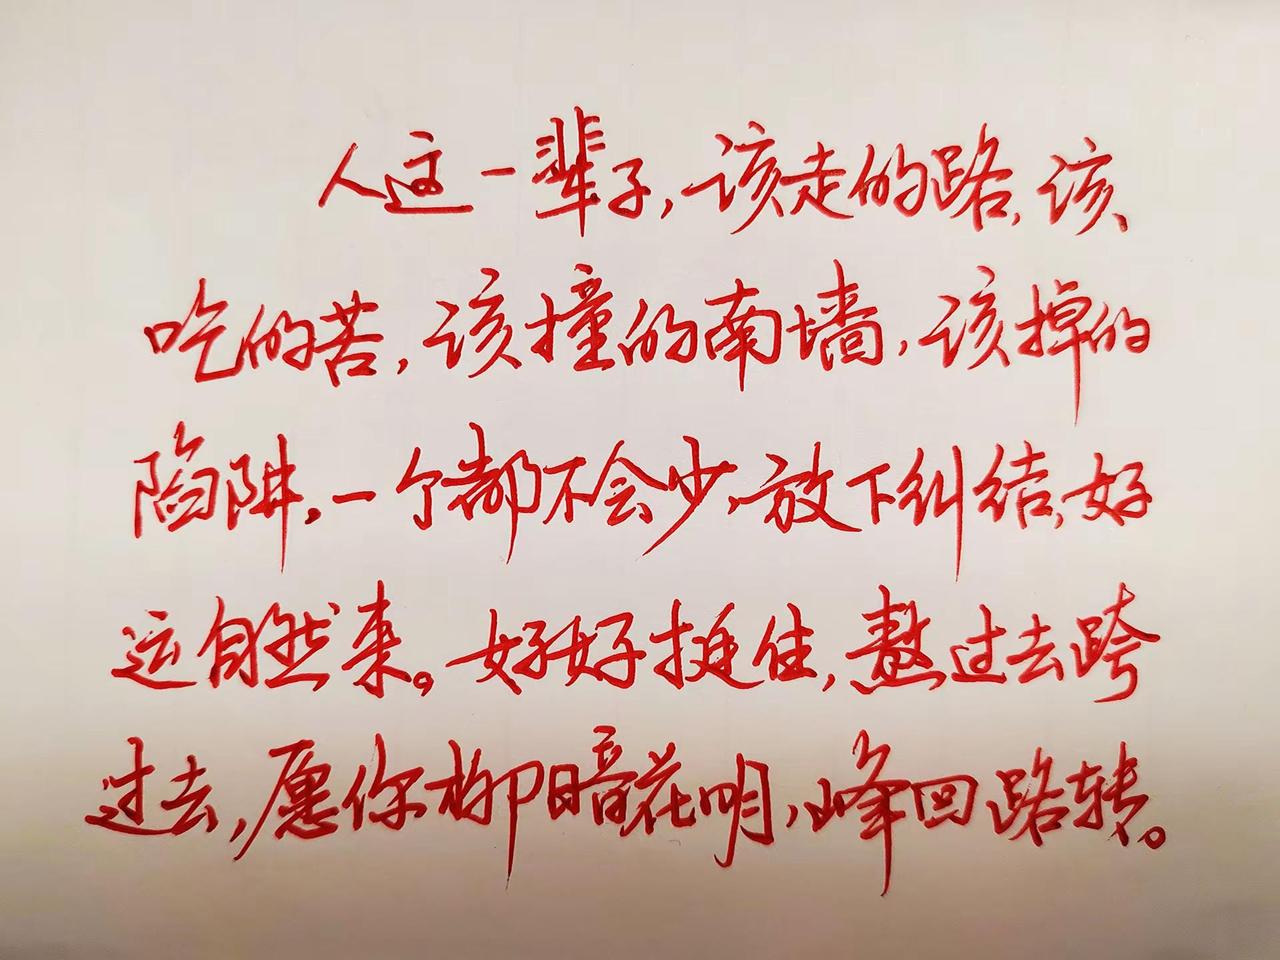 人这一辈子，该走的路，该
吃的苦，该撞的南墙，该掉的
陷阱，一个都不会少，放下纠结，好
运自然来。好好挺住，熬过去跨
过去，愿你柳暗花明，峰回路转。